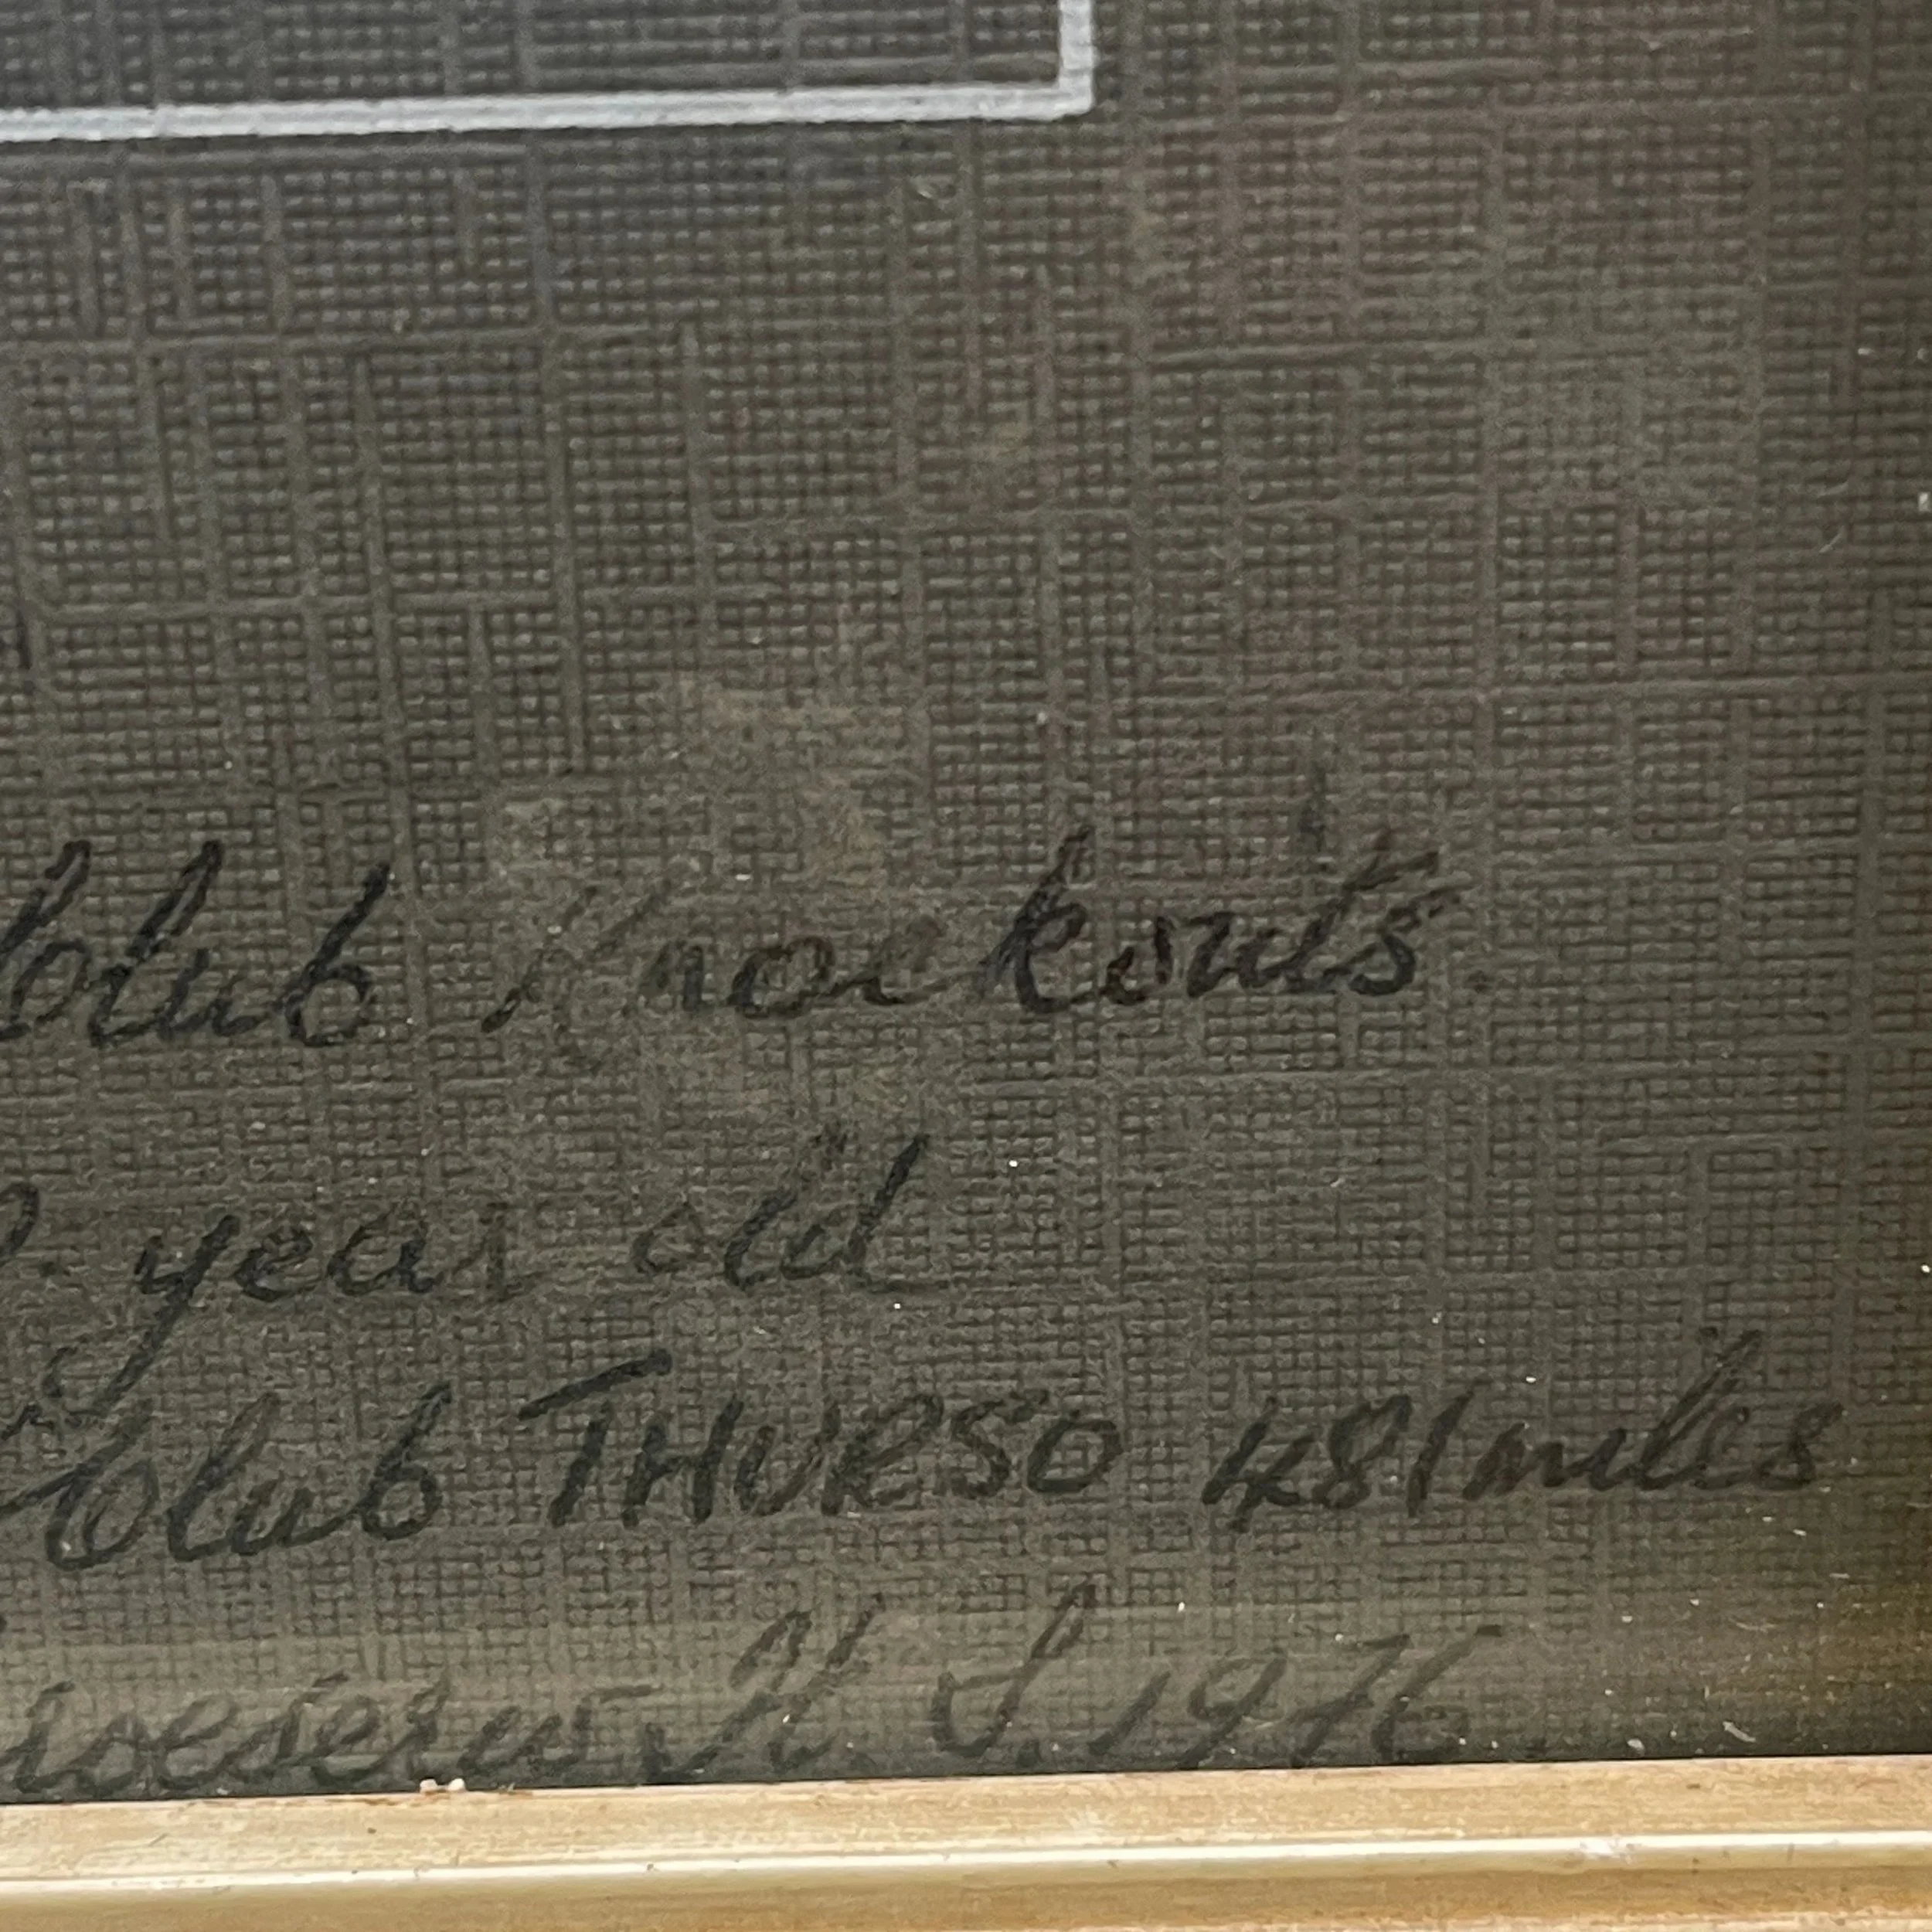 Club Knockouts.
year old
Club THURSO 481 miles
H. S. 1976